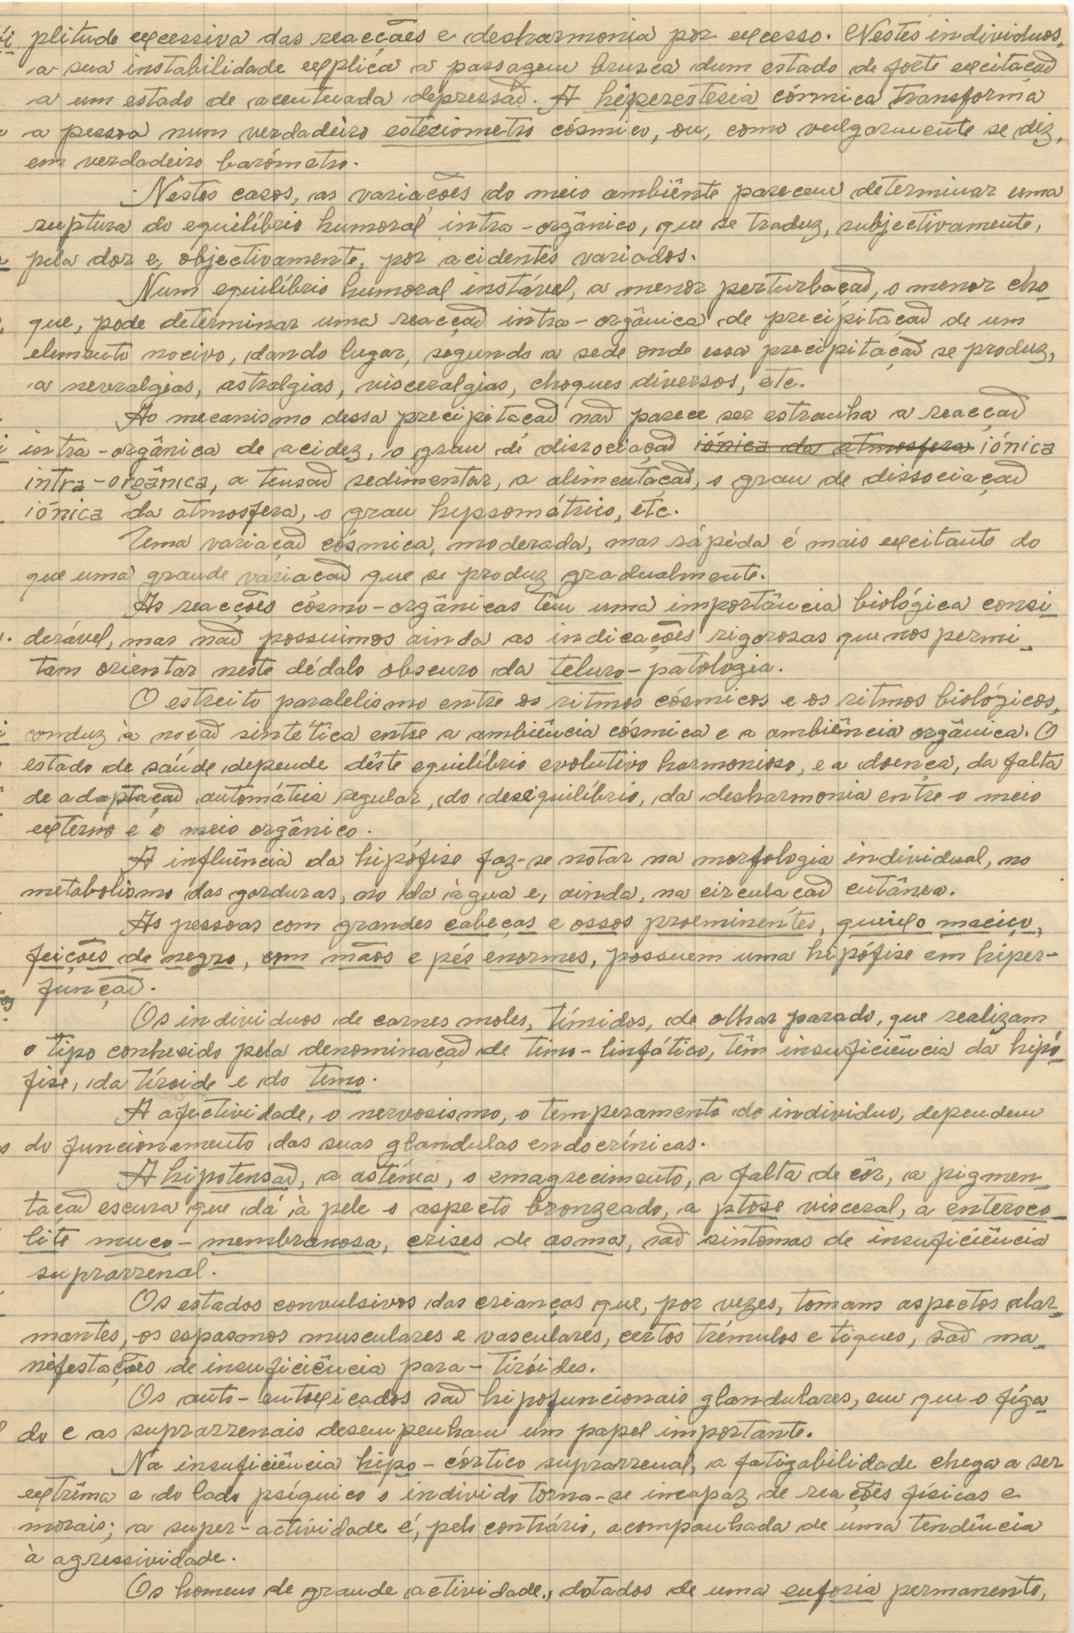 plitude excessiva das reacções e desharmonia por excesso. Nestes individuos,
a sua instabilidade explica a passagem brusca dum estado de forte excitação
a um estado de acentuada depressão. A hiperestesia córmica transforma
a pessoa num verdadeiro esteciometro cósmico, ou, como vulgarmente se diz,
em verdadeiro barómetro.
Nestes casos, as variações do meio ambiënte parecem determinar uma
ruptura do equilíbrio humoral intra-orgânico, que se traduz, subjectivamente,
pela dor e, objectivamente, por acidentes variados.
Num equilíbrio humoral instável, a menor perturbação, o menor cho-
que, pode determinar uma reacção intra-orgânica de precipitação de um
elemento nocivo, dando lugar, segundo a sede onde essa precipitação se produz,
a nevralgias, astralgias, visceralgias, choques diversos, etc.
Ao mecanismo dessa precipitação não parece ser estranha a reacção
intra-orgânica de acidez, o grau de dissociação iónica da atmosfera iónica
intra-orgânica, a tensão sedimentar, a alimentação, o grau de dissociação
iónica da atmosfera, o grau hypsométrico, etc.
Uma variação cósmica, moderada, mas rápida é mais excitante do
que uma grande variação que se produz gradualmente.
As reacções cósmo-orgânicas têm uma importância biológica consi-
derável, mas não possuimos ainda as indicações rigorosas que nos permi-
tam orientar neste dédalo obscuro da teluro-patologia.
O estreito paralelismo entre os ritmos cósmicos e os ritmos biológicos,
conduz à noção sintética entre a ambiência cósmica e a ambiência orgânica. O
estado de saúde depende dêste equilíbrio evolutivo harmonioso, e a doença, da falta
de adaptação automática regular, do desequilíbrio, da desharmonia entre o meio
externo e o meio orgânico.
A influência da hipófise faz-se notar na morfologia individual, no
metabolismo das gorduras, no da àgua e, ainda, na circulação cutânea.
As pessoas com grandes cabeças e ossos proeminentes, queixo maciço,
feições de negro, com mãos e pés enormes, possuem uma hipófise em hiper-
função.
Os individuos de carnes moles, tímidos, de olhar parado, que realizam
o tipo conhecido pela denominação de timo-linfático, têm insuficiência da hipó-
fise, da tíroide e do timo.
A afectividade, o nervosismo, o temperamento do individuo, dependem
do funcionamento das suas glandulas endocrínicas.
A hipotensão, a astenia, o emagrecimento, a falta de côr, a pigmen-
tação escura que dá à pele o aspecto bronzeado, a ptose visceral, a enteroco-
lite muco-membranosa, crises de asma, são sintomas de insuficiência
suprarrenal.
Os estados convulsivos das crianças que, por vezes, tomam aspectos alar-
mantes, os espasmos musculares e vasculares, certos trémulos e tiques, são ma-
nifestações de insuficiência para-tiróides.
Os auto-intoxicados são hipofuncionais glandulares, em que o fíga-
do e as suprarrenais desempenham um papel importante.
Na insuficiência hipo-córtico suprarrenal, a fatigabilidade chega a ser
extrêma e do lado psíquico o individo torna-se incapaz de reações físicas e
morais; a super-actividade é, pelo contrário, acompanhada de uma tendência
à agressividade.
Os homens de grande actividade, dotados de uma euforia permanente,